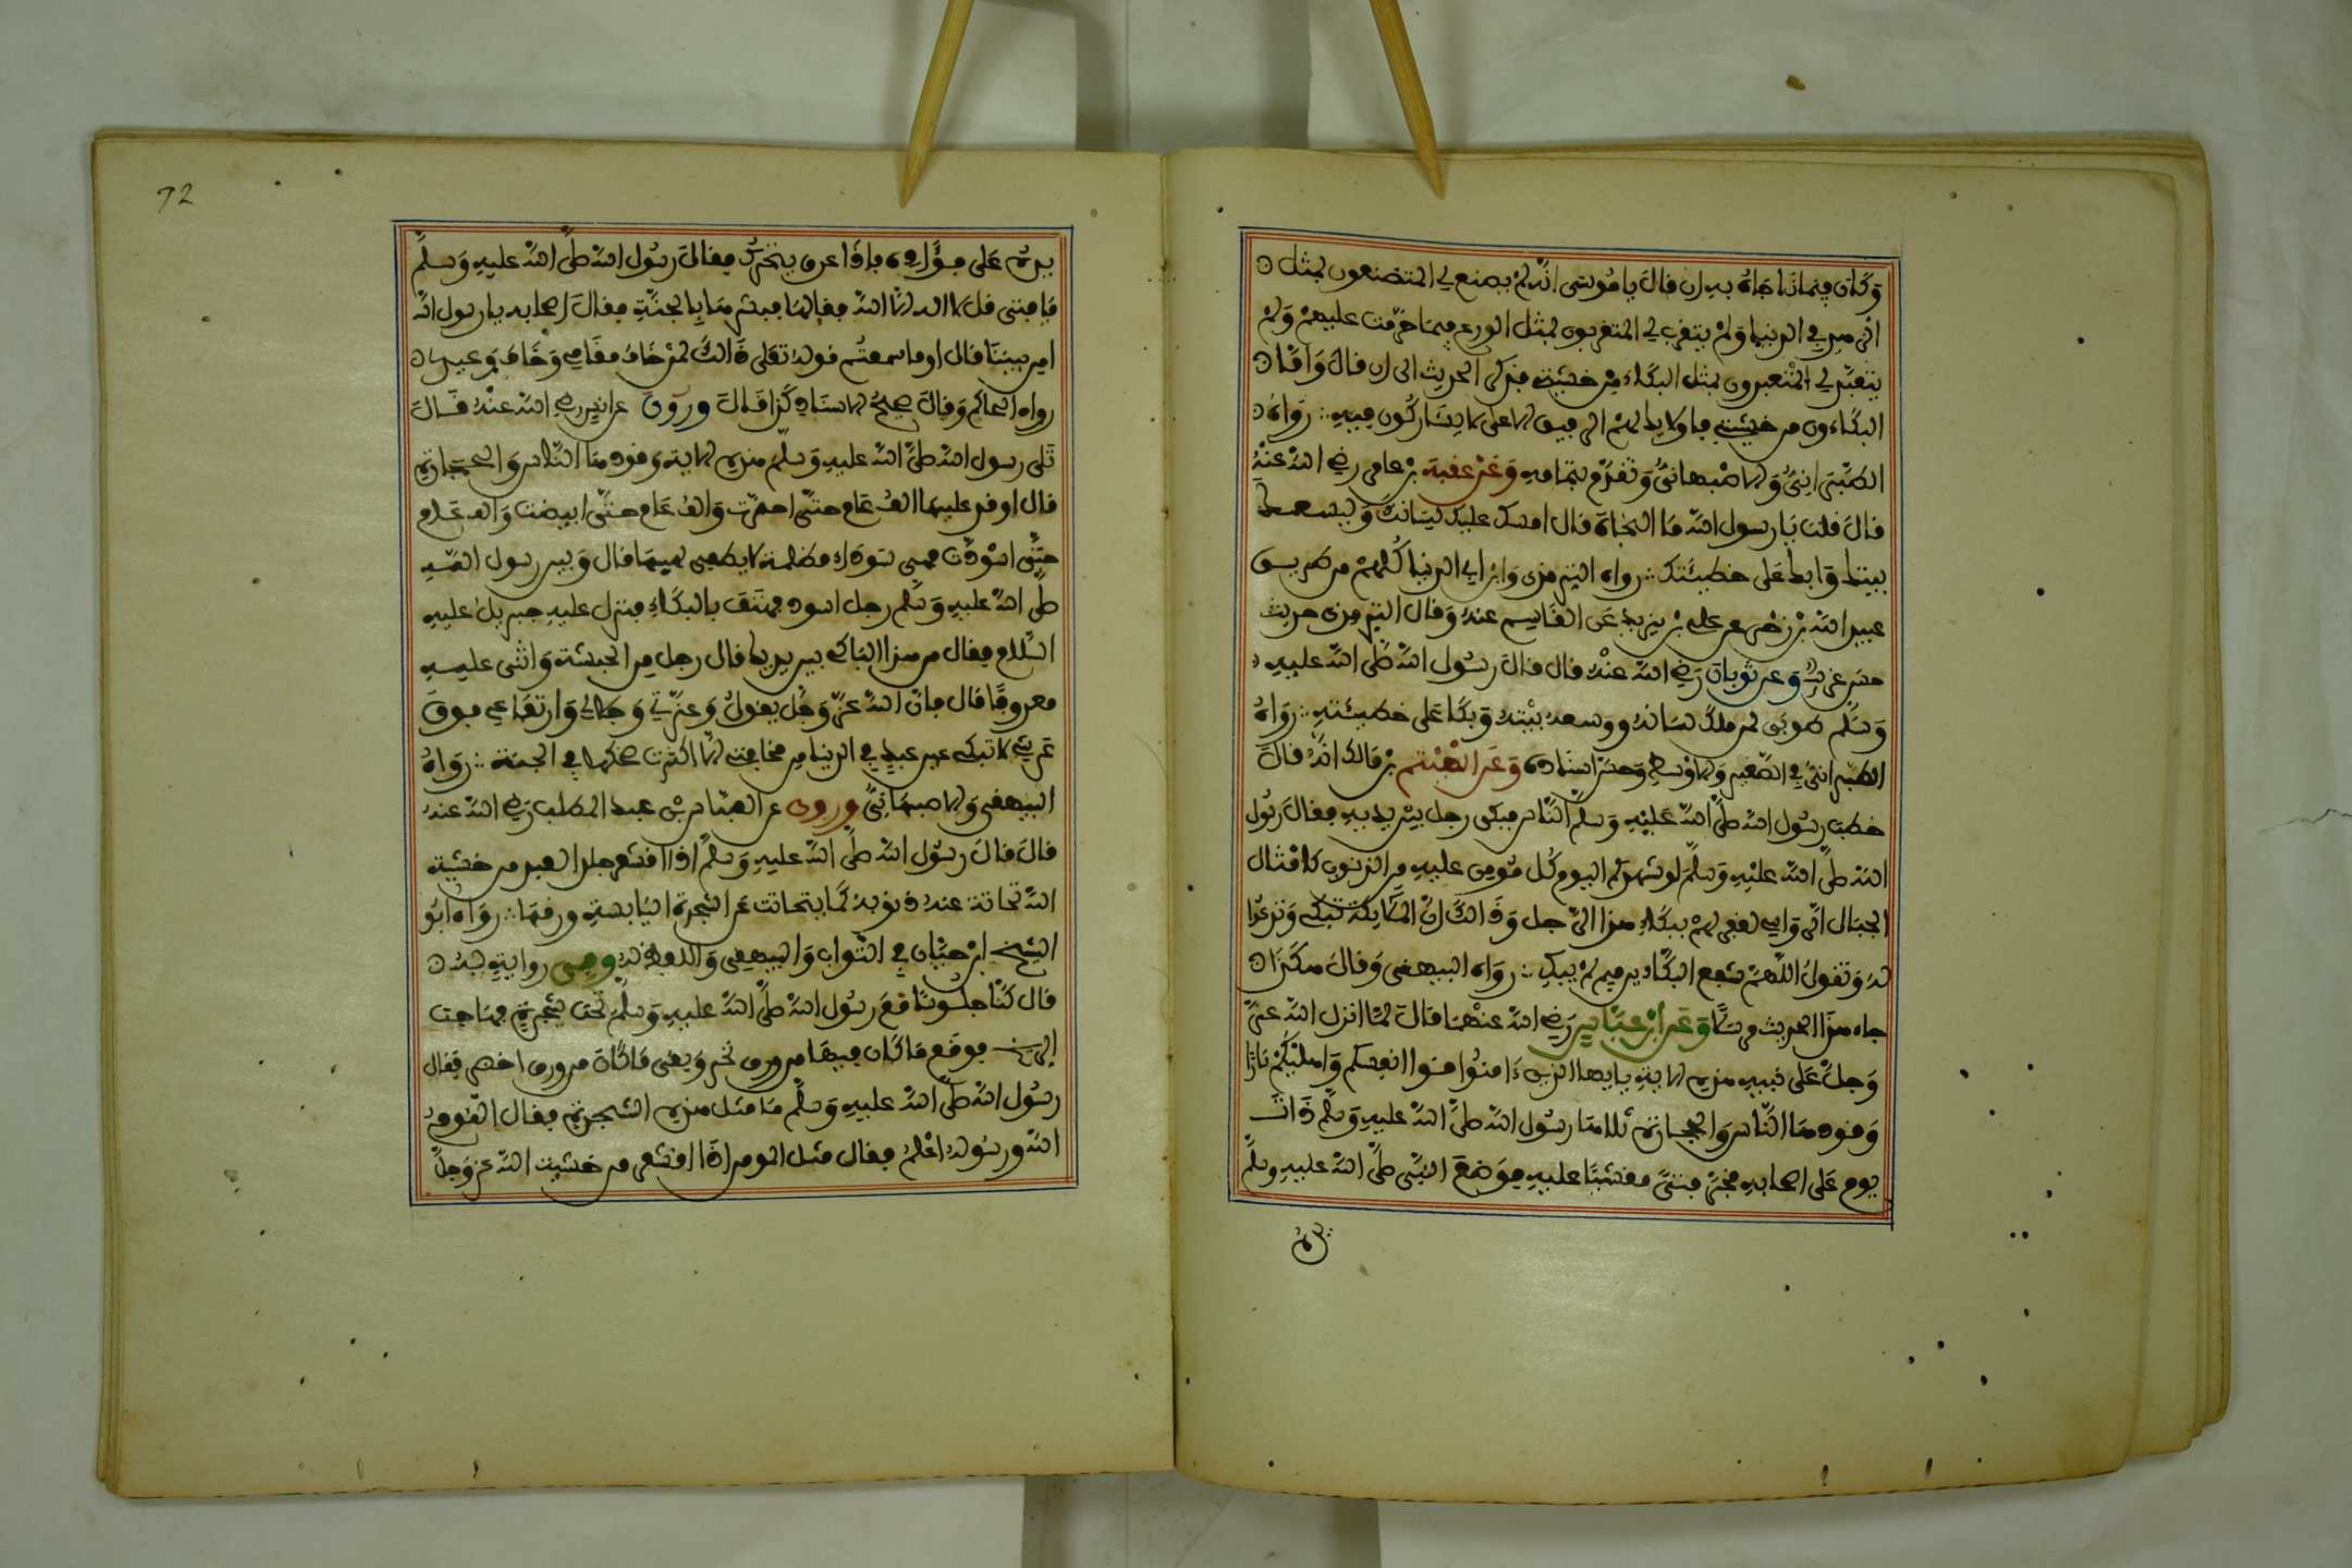 وكان فيما ناجاه به ان قال يا موسى انه لم يصنع لي المتصنعون بمثل
الزهد في الدنيا ولم يتقرب لي المتقربون بمثل الورع فيما حرمت عليهم ولم
يتعبد لي المتعبدون بمثل البكاء من خشيتي فذكر الحديث الى ان قال واما
البكاءون من خشيتي فاولايك لهم الرفيق الاعلى لا يشاركون فيه رواه
الطبراني والاصبهاني وتقدم بتمامه وعن عقبة بن عامر رضي الله عنه
قال قلت يا رسول الله ما النجاة قال امسك عليك لسانك وليسعك
بيتك وابك على خطيئتك رواه الترمذي وابن ابي الدنيا كلهم من طريق
عبيد الله بن زحر عن علي بن يزيد عن القاسم عنه وقال الترمذي حديث
حسن غريب وعن ثوبان رضي الله عنه قال قال رسول الله صلى الله عليه
وسلم طوبى لمن ملك لسانه ووسعه بيته وبكا على خطيئته رواه
الطبراني في الصغير والاوسط وحسن اسناده وعن الهيثم بن مالك انه قال
خطب رسول الله صلى الله عليه وسلم الناس فبكى رجل بين يديه فقال رسول
الله صلى الله عليه وسلم لو شهدكم اليوم كل مومن عليه من الذنوب كامثال
الجبال الرواسي لغفر لهم ببكاء هذا الرجل وذالك ان الملايكة تبكي وتدعوا
له وتقول اللهم شفع البكاءين فيمن لم يبك رواه البيهقي وقال هكذا
جاء هذا الحديث مرسلا وعن ابن عباس رضي الله عنهما قال لما انزل الله عز
وجل على نبيه هذه الاية يايها الذين ءامنوا قوا انفسكم واهليكم نارا
وقودها الناس والحجارة تلاها رسول الله صلى الله عليه وسلم ذات
يوم على اصحابه فخر فتى مغشيا عليه فوضع النبي صلى الله عليه وسلم
يده
72
يده على فؤاده فاذا هو يتحرك فقال رسول الله صلى الله عليه وسلم
يا فتى قل لا اله الا الله فقالها فبشره بالجنة فقال اصحابه يا رسول الله
امن بيننا قال اوما سمعتم قوله تعلى ذالك لمن خاف مقامي وخاف وعيد
رواه الحاكم وقال صحيح الاسناد كذا قال وروي عن انس رضي الله عنه قال
تلى رسول الله صلى الله عليه وسلم هذه الاية وقودها الناس والحجارة
قال اوقد عليها الف عام حتى احمرت والف عام حتى ابيضت والف عام
حتى اسودت فهي سوداء مظلمة لا يطفى لهيبها قال وبين رسول الله
صلى الله عليه وسلم رجل اسود فهتف بالبكاء فنزل عليه جبريل عليه
السلام فقال من هذا الباكي بين يديك قال رجل من الحبشة واثنى عليه
معروفا قال فان الله عز وجل يقول وعزتي وجلالي وارتفاعي فوق
عرشي لا تبكي عين عبد في الدنيا من مخافتي الا اكثرت ضحكها في الجنة رواه
البيهقي والاصبهاني وروي عن العباس بن عبد المطلب رضي الله عنه
قال قال رسول الله صلى الله عليه وسلم اذا اقشعر جلد العبد من خشية
الله تحاتت عنه ذنوبه كما يتحاتت عن الشجرة اليابسة ورقها رواه ابو
الشيخ ابن حبان في الثواب والبيهقي واللفظ له وفي رواية له
قال كنا جلوسا مع رسول الله صلى الله عليه وسلم تحت شجرة فهاجت
الريح فوقع ما كان فيها من ورق نخر وبقى ما كان من ورق اخضر فقال
رسول الله صلى الله عليه وسلم ما مثل هذه الشجرة فقال القوم
الله ورسوله اعلم فقال مثل المومن اذا اقشعر من خشية الله عز وجل